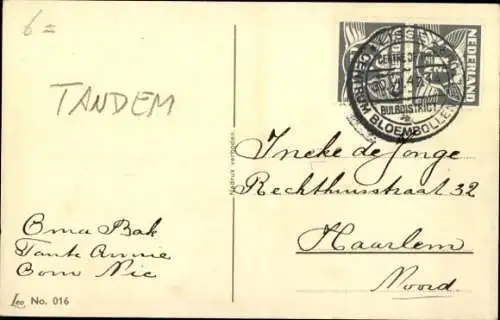 6=
TANDEM
NEDERLAND
CENTRE OF THE
BULBDISTRICT
CENTRUM BLOEMBOLLEN
Nadruk verboden
Ineke de Jonge
Rechthuisstraat 32
Haarlem
Noord.
Oma Bak
Tante Annie
Oom Nic
Leo No. 016